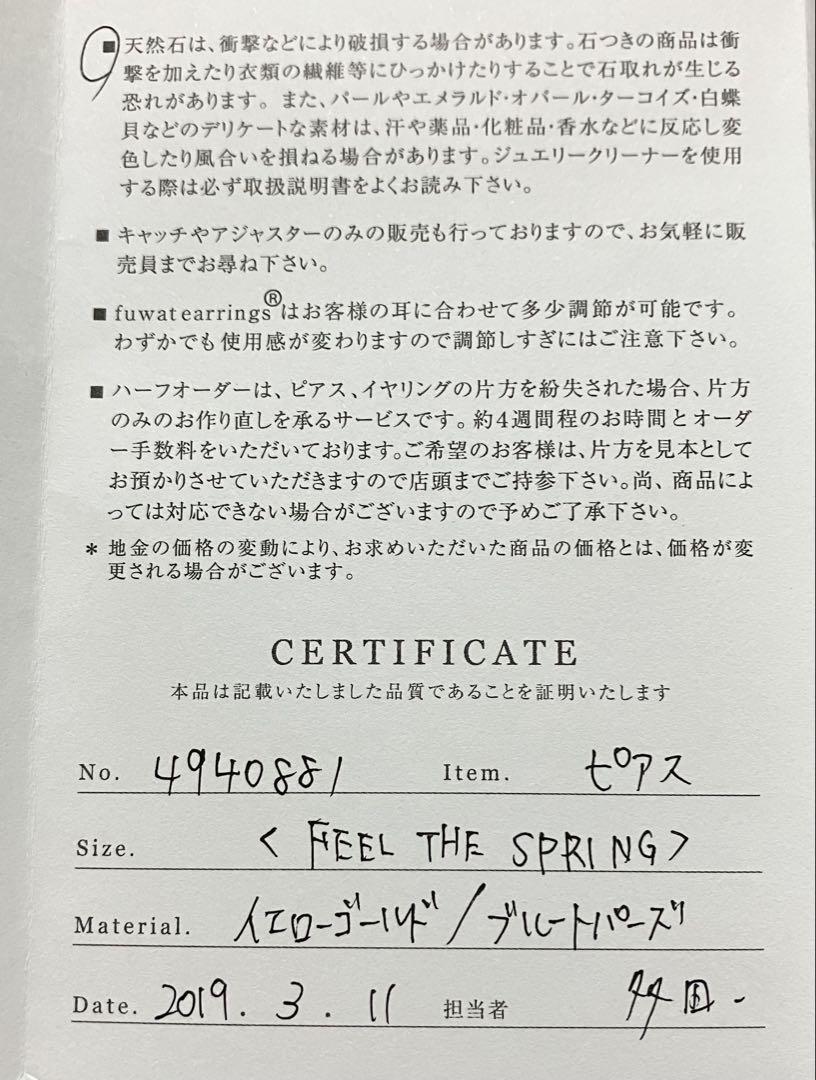 ■ 天然石は、衝撃などにより破損する場合があります。石つきの商品は衝
撃を加えたり衣類の繊維等にひっかけたりすることで石取れが生じる
恐れがあります。また、パールやエメラルド・オパール・ターコイズ・白蝶
貝などのデリケートな素材は、汗や薬品・化粧品・香水などに反応し変
色したり風合いを損ねる場合があります。ジュエリークリーナーを使用
する際は必ず取扱説明書をよくお読み下さい。
■ キャッチやアジャスターのみの販売も行っておりますので、お気軽に販
売員までお尋ね下さい。
■ fuwat earrings®はお客様の耳に合わせて多少調節が可能です。
わずかでも使用感が変わりますので調節しすぎにはご注意下さい。
■ ハーフオーダーは、ピアス、イヤリングの片方を紛失された場合、片方
のみのお作り直しを承るサービスです。約4週間程のお時間とオーダ
ー手数料をいただいております。ご希望のお客様は、片方を見本として
お預かりさせていただきますので店頭までご持参下さい。尚、商品によ
っては対応できない場合がございますので予めご了承下さい。
* 地金の価格の変動により、お求めいただいた商品の価格とは、価格が変
更される場合がございます。
CERTIFICATE
本品は記載いたしました品質であることを証明いたします
No. 4940881 Item. ピアス
Size. < FEEL THE SPRING >
Material. イエローゴールド/ブルートパーズ
Date. 2019. 3. 11 担当者